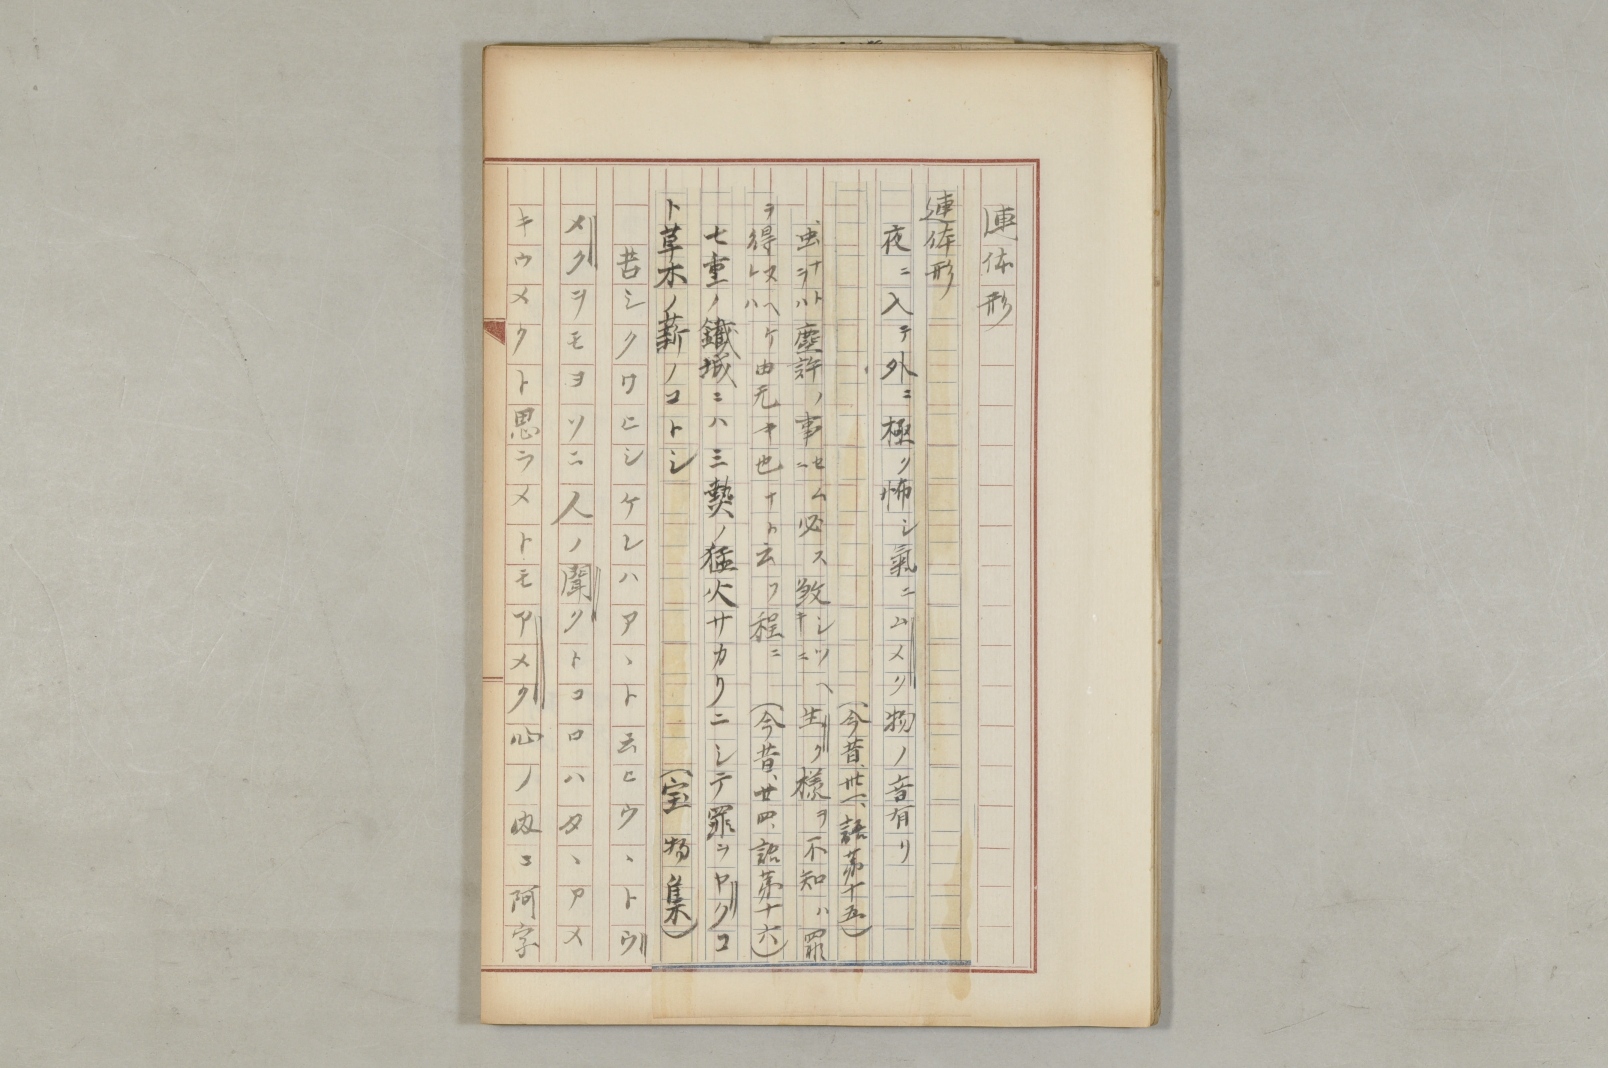 連体形
連体形
夜ニ入テ外ニ極ク怖シ氣ニムメク物ノ音有リ
(今昔、卅一、語第十五)
虫ナトヲハ塵許ノ事ニセム必ス敵キニシツヘ生ク様ヲ不知ハ罪
ヲ得ヌヘケレハ由无キ也ナト云フ程ニ(今昔、廿四、語第十六)
七重ノ鐵城ニハ三熱ノ猛火サカリニシテ罪ヲヤクコ
ト草木ノ薪ノコトシ(宝物集)
苦シクワヒシケレハアヽト云ヒウヽトウ
メクヲモヨソニ人ノ聞クトコロハタヽアメ
キウメクト思ラメトモアメク心ノ内ニ阿字